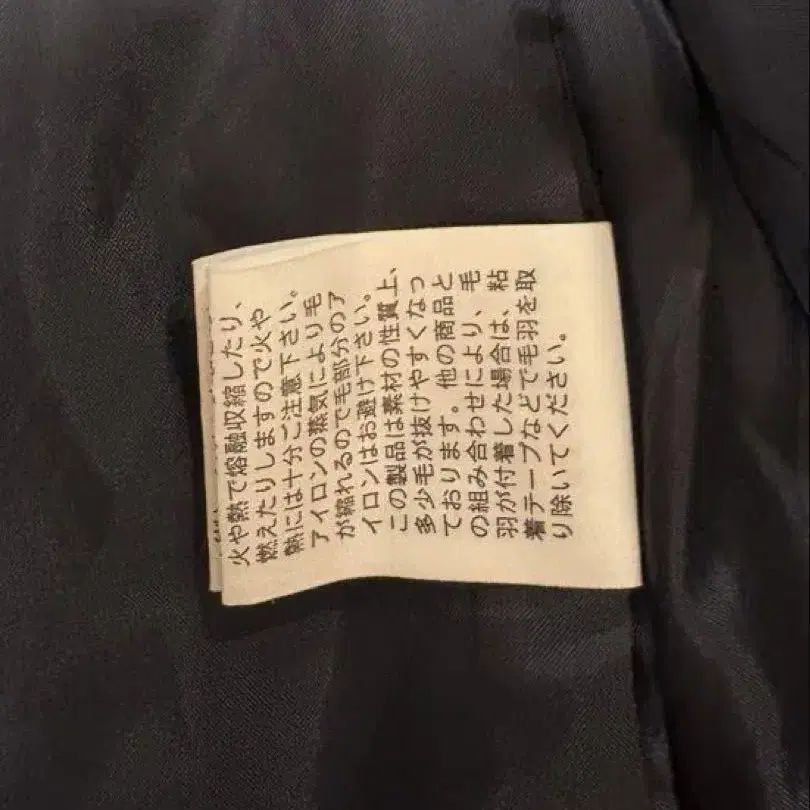 火や熱で熔融収縮したり、
燃えたりしますので火や
熱には十分ご注意下さい。
アイロンの蒸気により毛
が縮れるので毛部分のア
イロンはお避け下さい。
この製品は素材の性質上、
多少毛が抜けやすくなっ
ております。他の商品と
の組み合わせにより、毛
羽が付着した場合は、粘
着テープなどで毛羽を取
り除いてください。